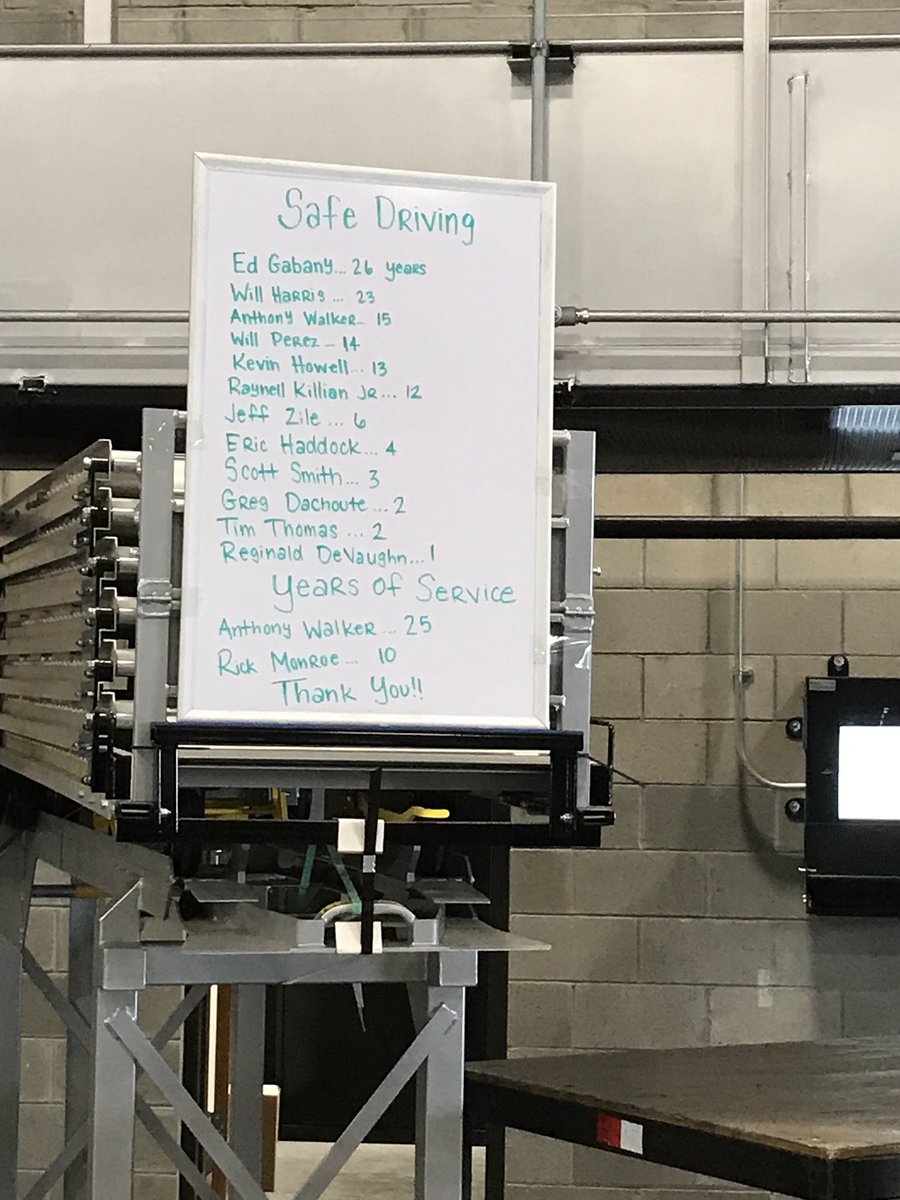 Safe Driving
Ed Gabany... 26 years
Will Harris ... 23
Anthony Walker... 15
Will Perez ... 14
Kevin Howell... 13
Raynell Killian Jr... 12
Jeff Zile ... 6
Eric Haddock... 4
Scott Smith... 3
Greg Dachoute ... 2
Tim Thomas ... 2
Reginald DeVaughn... 1
Years of Service
Anthony Walker ... 25
Rick Monroe ... 10
Thank You!!